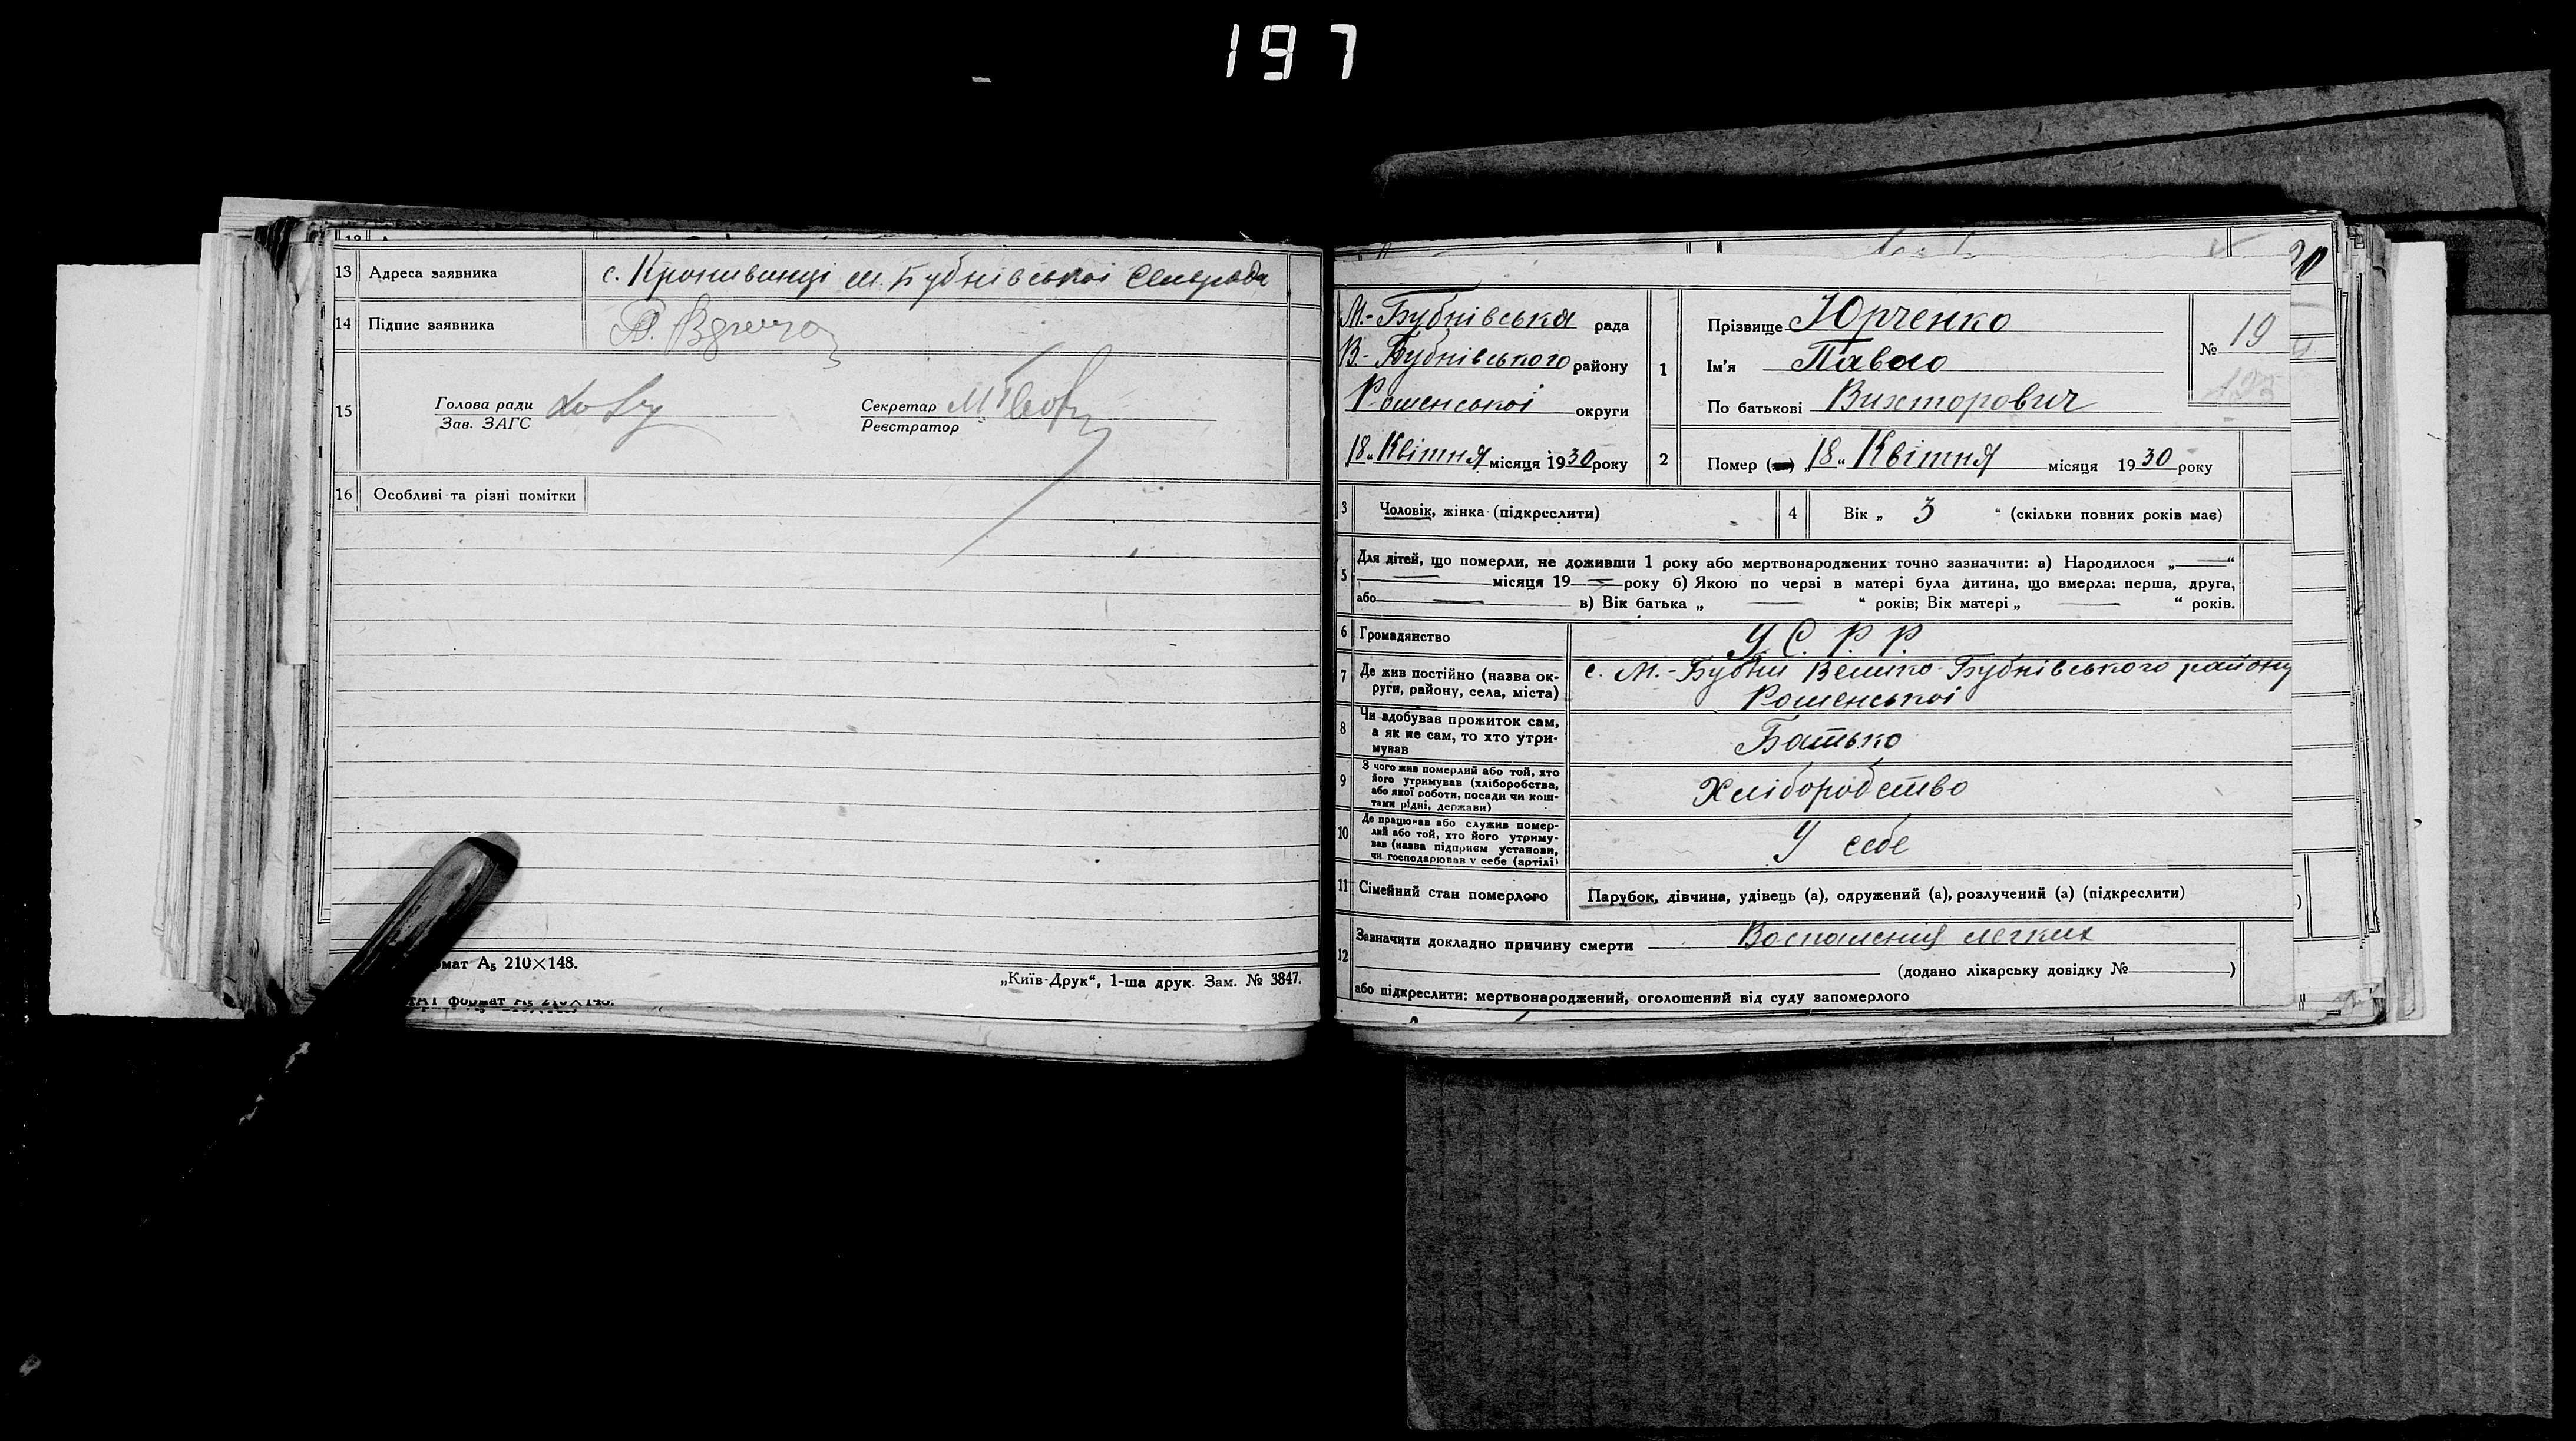 197
13 Адреса заявника с. Кропивинці М. Бубнівської сельрада
14 Підпис заявника
15 Голова ради
Зав. ЗАГС
Секретар
Реєстратор
16 Особливі та різні помітки
формат А5 210×148.
„Київ-Друк“, 1-ша друк. Зам. № 3847.
формат А5 210×148.
20
М.-Бубнівська рада
В.-Бубнівського району
Роменської округи
18 „ Квітня місяця 1930 року
1 Прізвище Юрченко
Ім'я Павло
По батькові Вихторович
№ 19
2 Помер (ла) „ 18 “ Квітня місяця 1930 року
3 Чоловік, жінка (підкреслити)
4 Вік „ 3 “ (скільки повних років має)
5 Для дітей, що померли, не доживши 1 року або мертвонароджених точно зазначити: а) Народилося „ — “
— місяця 19 — року б) Якою по черзі в матері була дитина, що вмерла: перша, друга,
або — в) Вік батька „ — “ років; Вік матері „ — “ років.
6 Громадянство У. С. Р. Р.
7 Де жив постійно (назва ок-
руги, району, села, міста)
с. М.-Бубни Велико-Бубнівського району
Роменської
8 Чи здобував прожиток сам,
а як не сам, то хто утри-
мував
Батько
9 З чого жив померлий або той, хто
його утримував (хліборобства,
або якої роботи, посади чи кош-
тами рідні, держави)
Хліборобство
10 Де працював або служив помер-
лий або той, хто його утриму-
вав (назва підприєм установи,
чи господарював у себе (артілі)
У себе
11 Сімейний стан померлого Парубок, дівчина, удівець (а), одружений (а), розлучений (а) (підкреслити)
12 Зазначити докладно причину смерти Воспаления легких
(додано лікарську довідку № —)
або підкреслити: мертвонароджений, оголошений від суду запомерлого